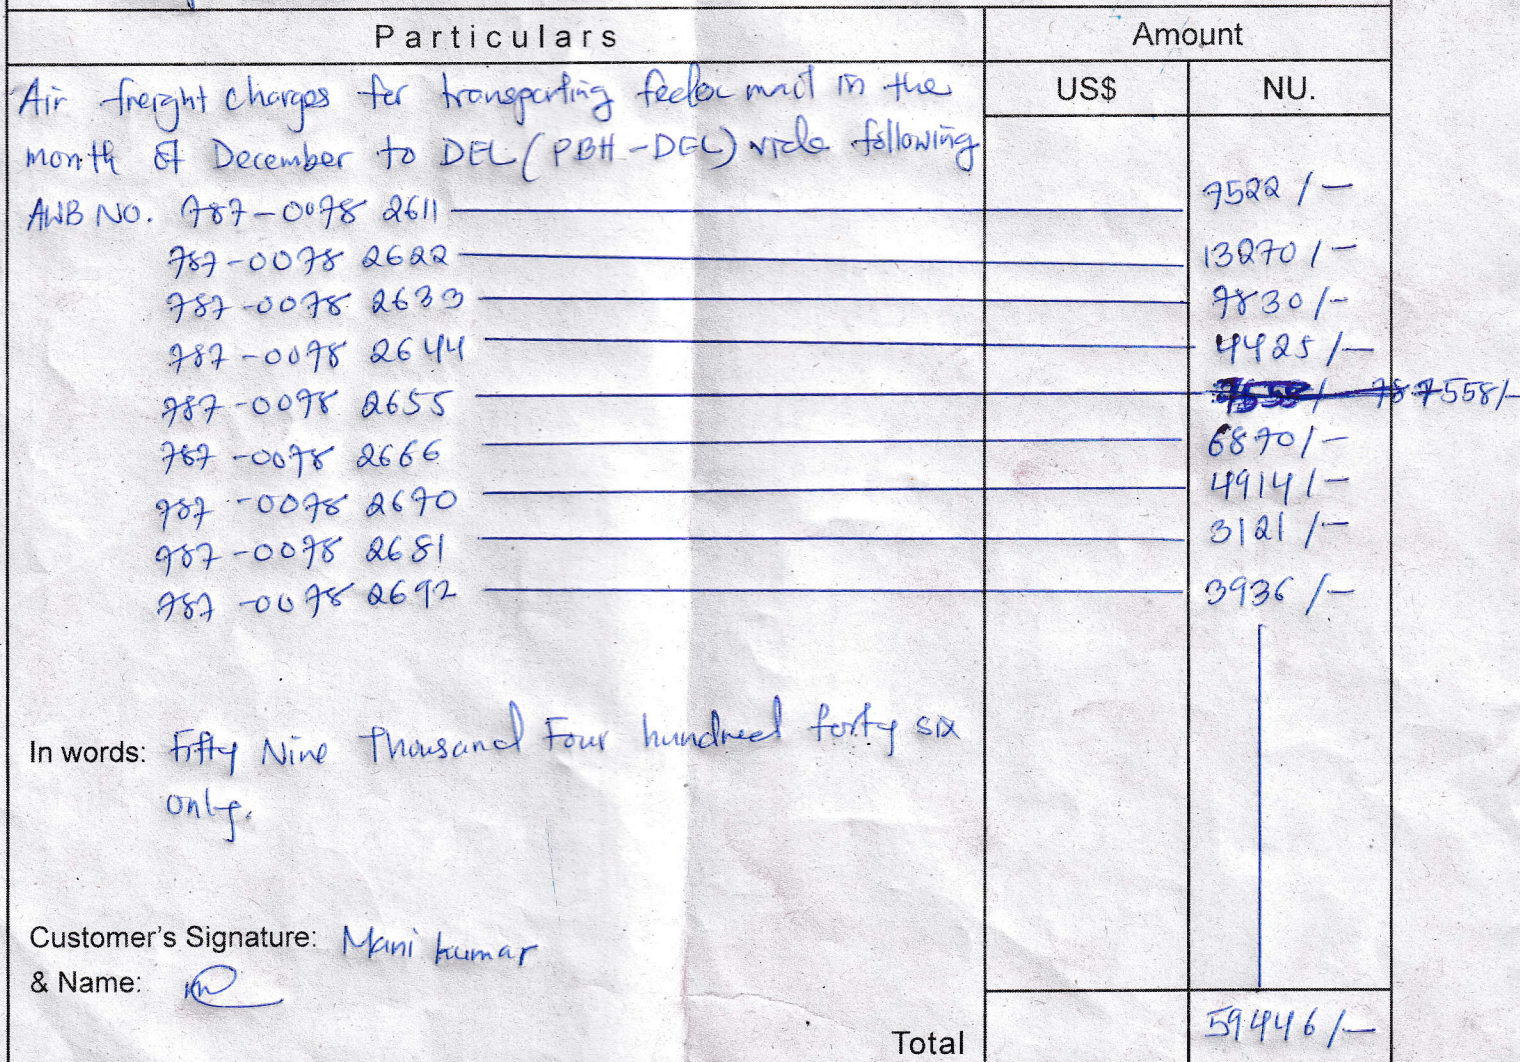 Particulars Amount
US$ NU.
Air freight charges for transporting fedex mail in the
month of December to DEL (PBH-DEL) vide following
AWB NO. 787-0078 2611 7522/-
787-0078 2622 13270/-
787-0078 2633 7830/-
787-0078 2644 4425/-
787-0078 2655 7558/-
787-0078 2666 6870/-
787-0078 2670 4914/-
787-0078 2681 3121/-
787-0078 2692 3936/-
In words: Fifty Nine Thousand Four hundred forty six
only.
Customer's Signature: Mani kumar
& Name:
Total 59446/-